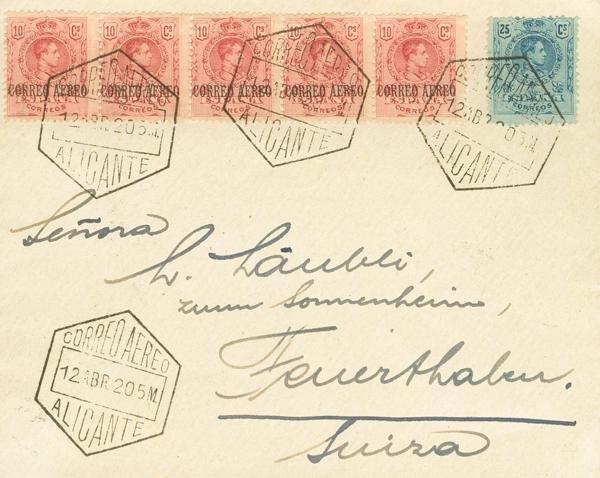 10 Cs 10 Cs 10 Cs 10 Cs 10 Cs 25 Cs
CORREO AEREO CORREO AEREO CORREO AEREO CORREO AEREO CORREO AEREO
ESPAÑA ESPAÑA ESPAÑA ESPAÑA ESPAÑA ESPAÑA
CORREOS CORREOS CORREOS CORREOS CORREOS CORREOS
CORREO AEREO
12 ABR.20 5M.
ALICANTE
CORREO AEREO
12
ALICANTE
CORREO AEREO
12 ABR.20 5M.
ALICANTE
Señora
L. Läubli,
zum Sonnenheim,
Feuerthalen.
Suiza
CORREO AEREO
12 ABR.20 5M.
ALICANTE